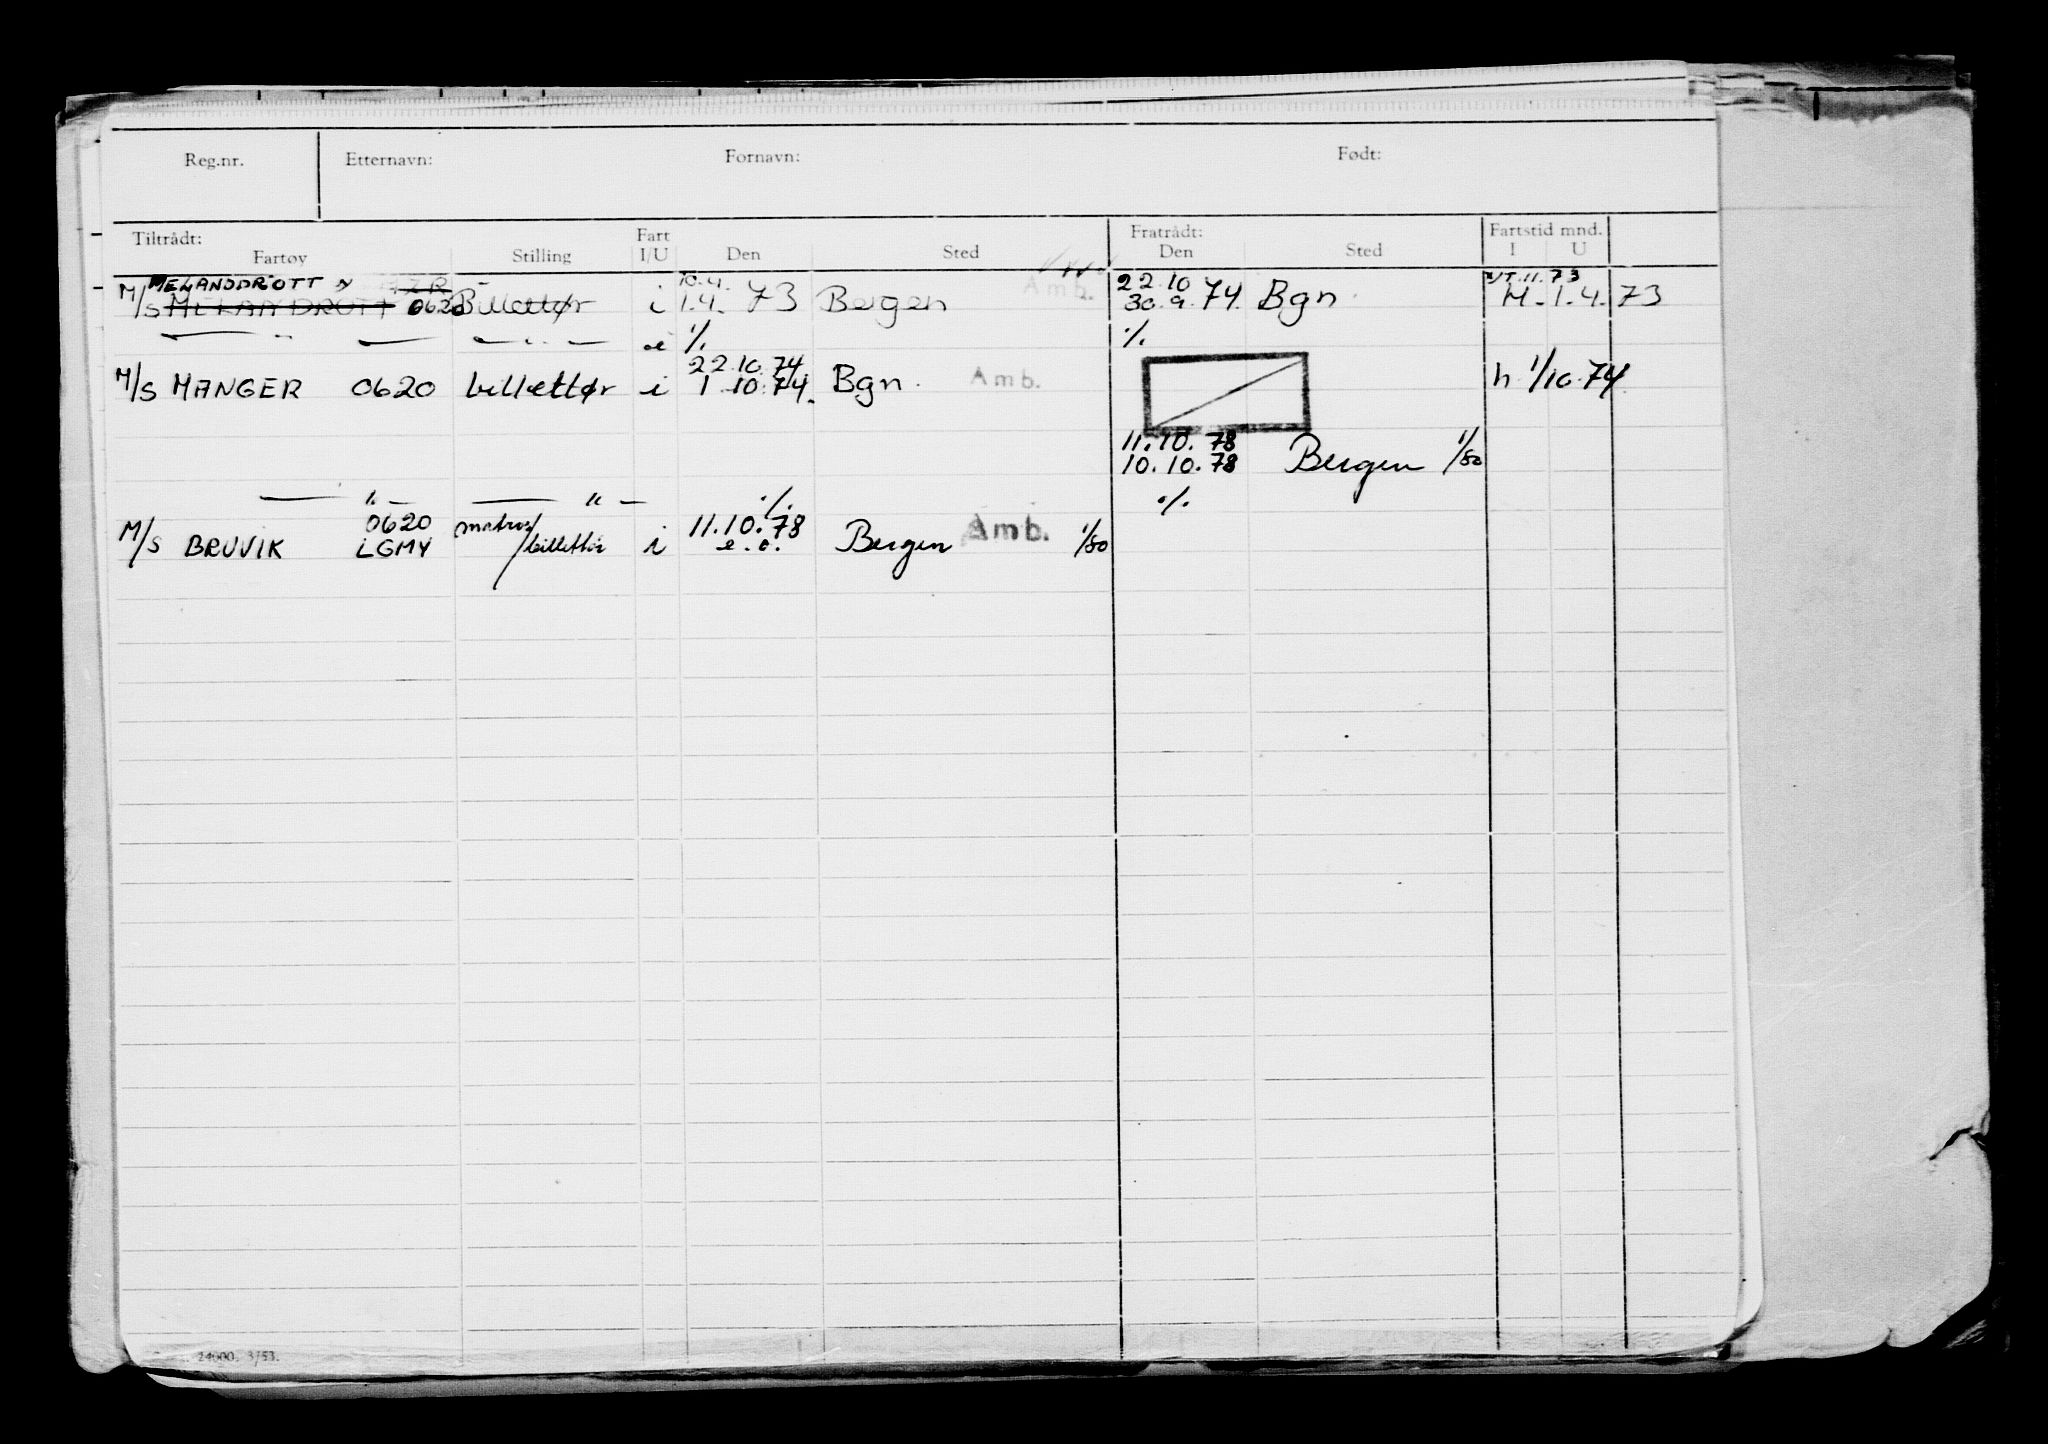 Reg.nr. Etternavn: Fornavn: Født:
Tiltrådt: Fart Fratrådt: Fartstid mnd.
Fartøy Stilling I/U Den Sted Den Sted I U
MELANDDROTT 10.4. 22.10 11.73
M/S MELANDDROTT 0620 Billettør i 1.4. 73 Bergen Amb. 30.9.74. Bgn. H.1.4.73
— " — — " — ./. ./.
22.10.74
M/S MANGER 0620 billettør i 1.10.74. Bgn. Amb. h. 1/10.74
11.10.78
10.10.78 Bergen 1/80
— " — — " — ./. ./.
0620 matros/ 11.10.78
M/S BRUVIK LGMY billettør i e.o. Bergen Amb. 1/80
24000. 3/53.